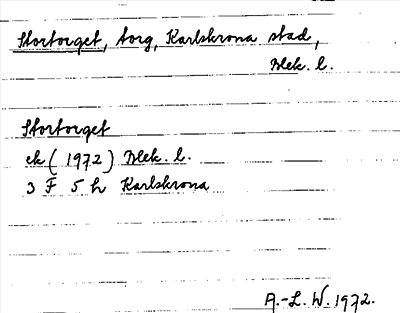 Stortorget, torg, Karlskrona stad,
Blek. l.
Stortorget
ek (1972) Blek. l.
3 F 5 h Karlskrona
A.-L. W. 1972.